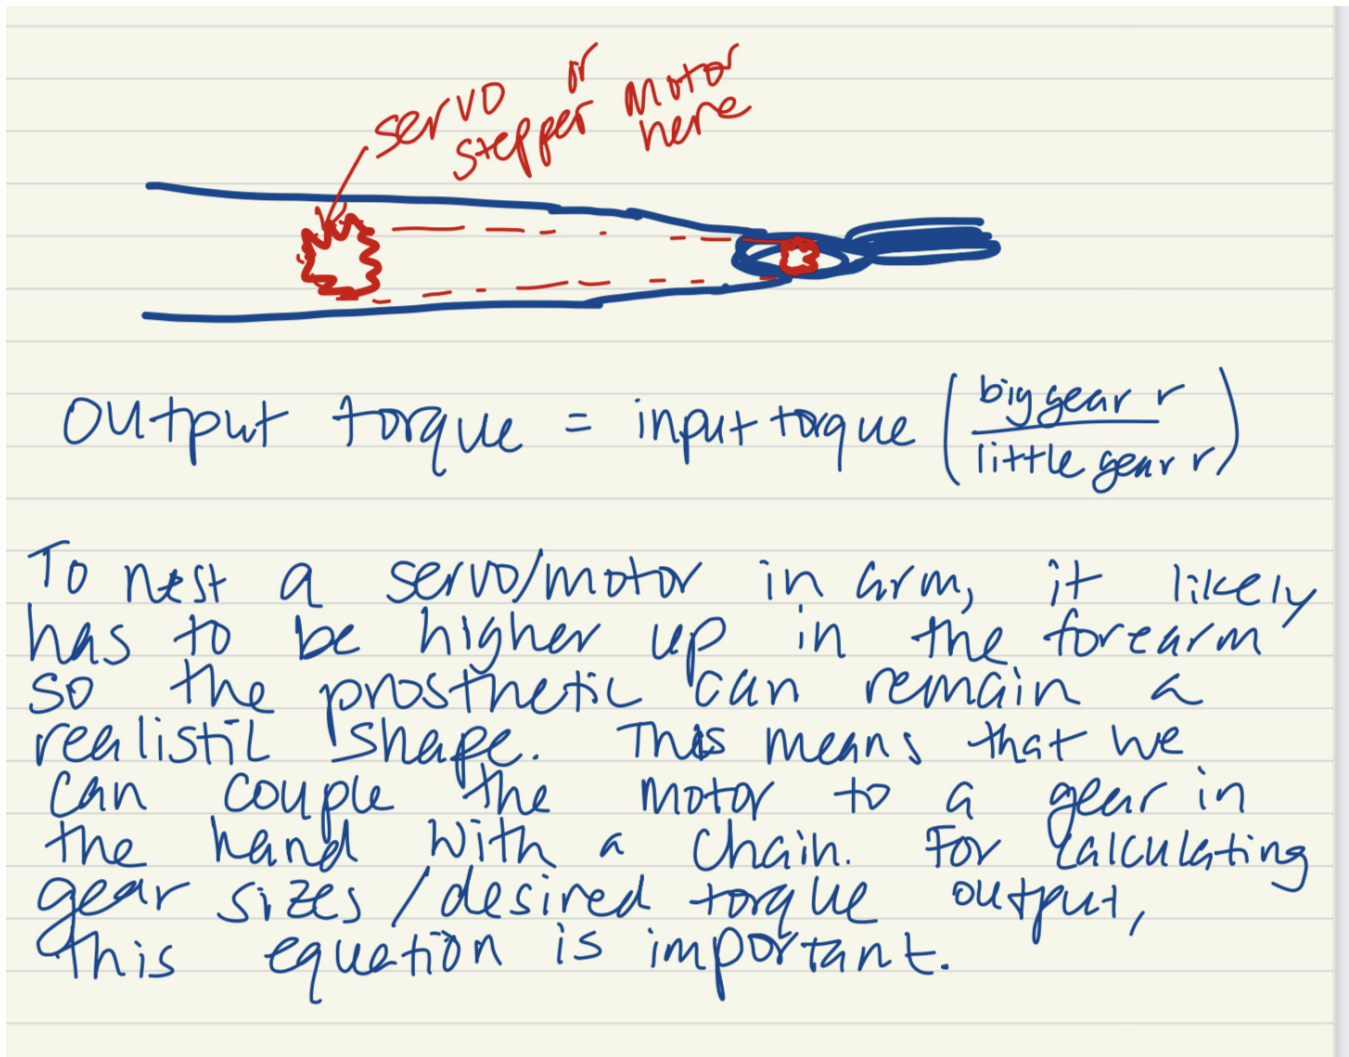 servo or
stepper motor
here
Output torque = input torque (big gear r / little gear r)
To nest a servo/motor in arm, it likely
has to be higher up in the forearm
so the prosthetic can remain a
realistic shape. This means that we
can couple the motor to a gear in
the hand with a chain. For calculating
gear sizes/desired torque output,
this equation is important.